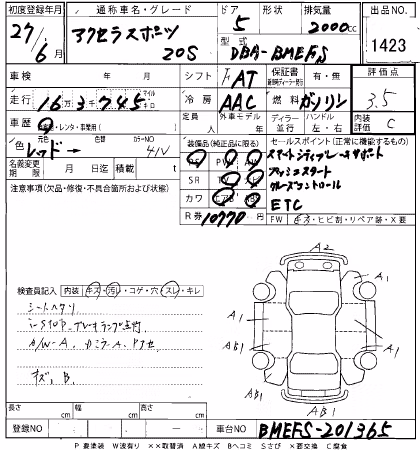 初度登録年月 通称車名・グレード ドア 形状 排気量 出品NO.
27/6月 アクセラスポーツ 20S 5 2000cc 1423
型式 DBA-BMEFS
車検 年 月 シフト AT 保証書 有・無 評価点
走行 16万3千745 マイル キロ 冷房 AAC 燃料 ガソリン 3.5
車歴 レンタ・事業用 定員 人 外車モデル 年 ディーラー 並行 ハンドル 左・右 内装評価 C
色 元色 レッド→ カラーNO. 41V
装備品(純正品に限る) セールスポイント(正常に機能するもの)
名義変更期限 月 日 車台 積載 t
PS PW AW
スマートシティブレーキサポート
SR TV
プッシュスタート
カワ エアB
クルーズコントロール
ETC
注意事項(欠品・修復・不具合箇所および状態)
R券 10770
FW キズ・ヒビ割・リペア跡・X要
A2
A1
A1
A1
AB1
AB1
AB1
検査員記入 内装 キズ・汚・コゲ・穴・スレ・キレ
シートヘタリ
i-STOP
A/W-A
キズ、B
長さ cm 幅 cm 高さ cm
登録NO 車台NO BMEFS-201365
P 要塗装 W波有り ××取替済 A線キズ Bヘコミ Sさび ×要交換 C腐食